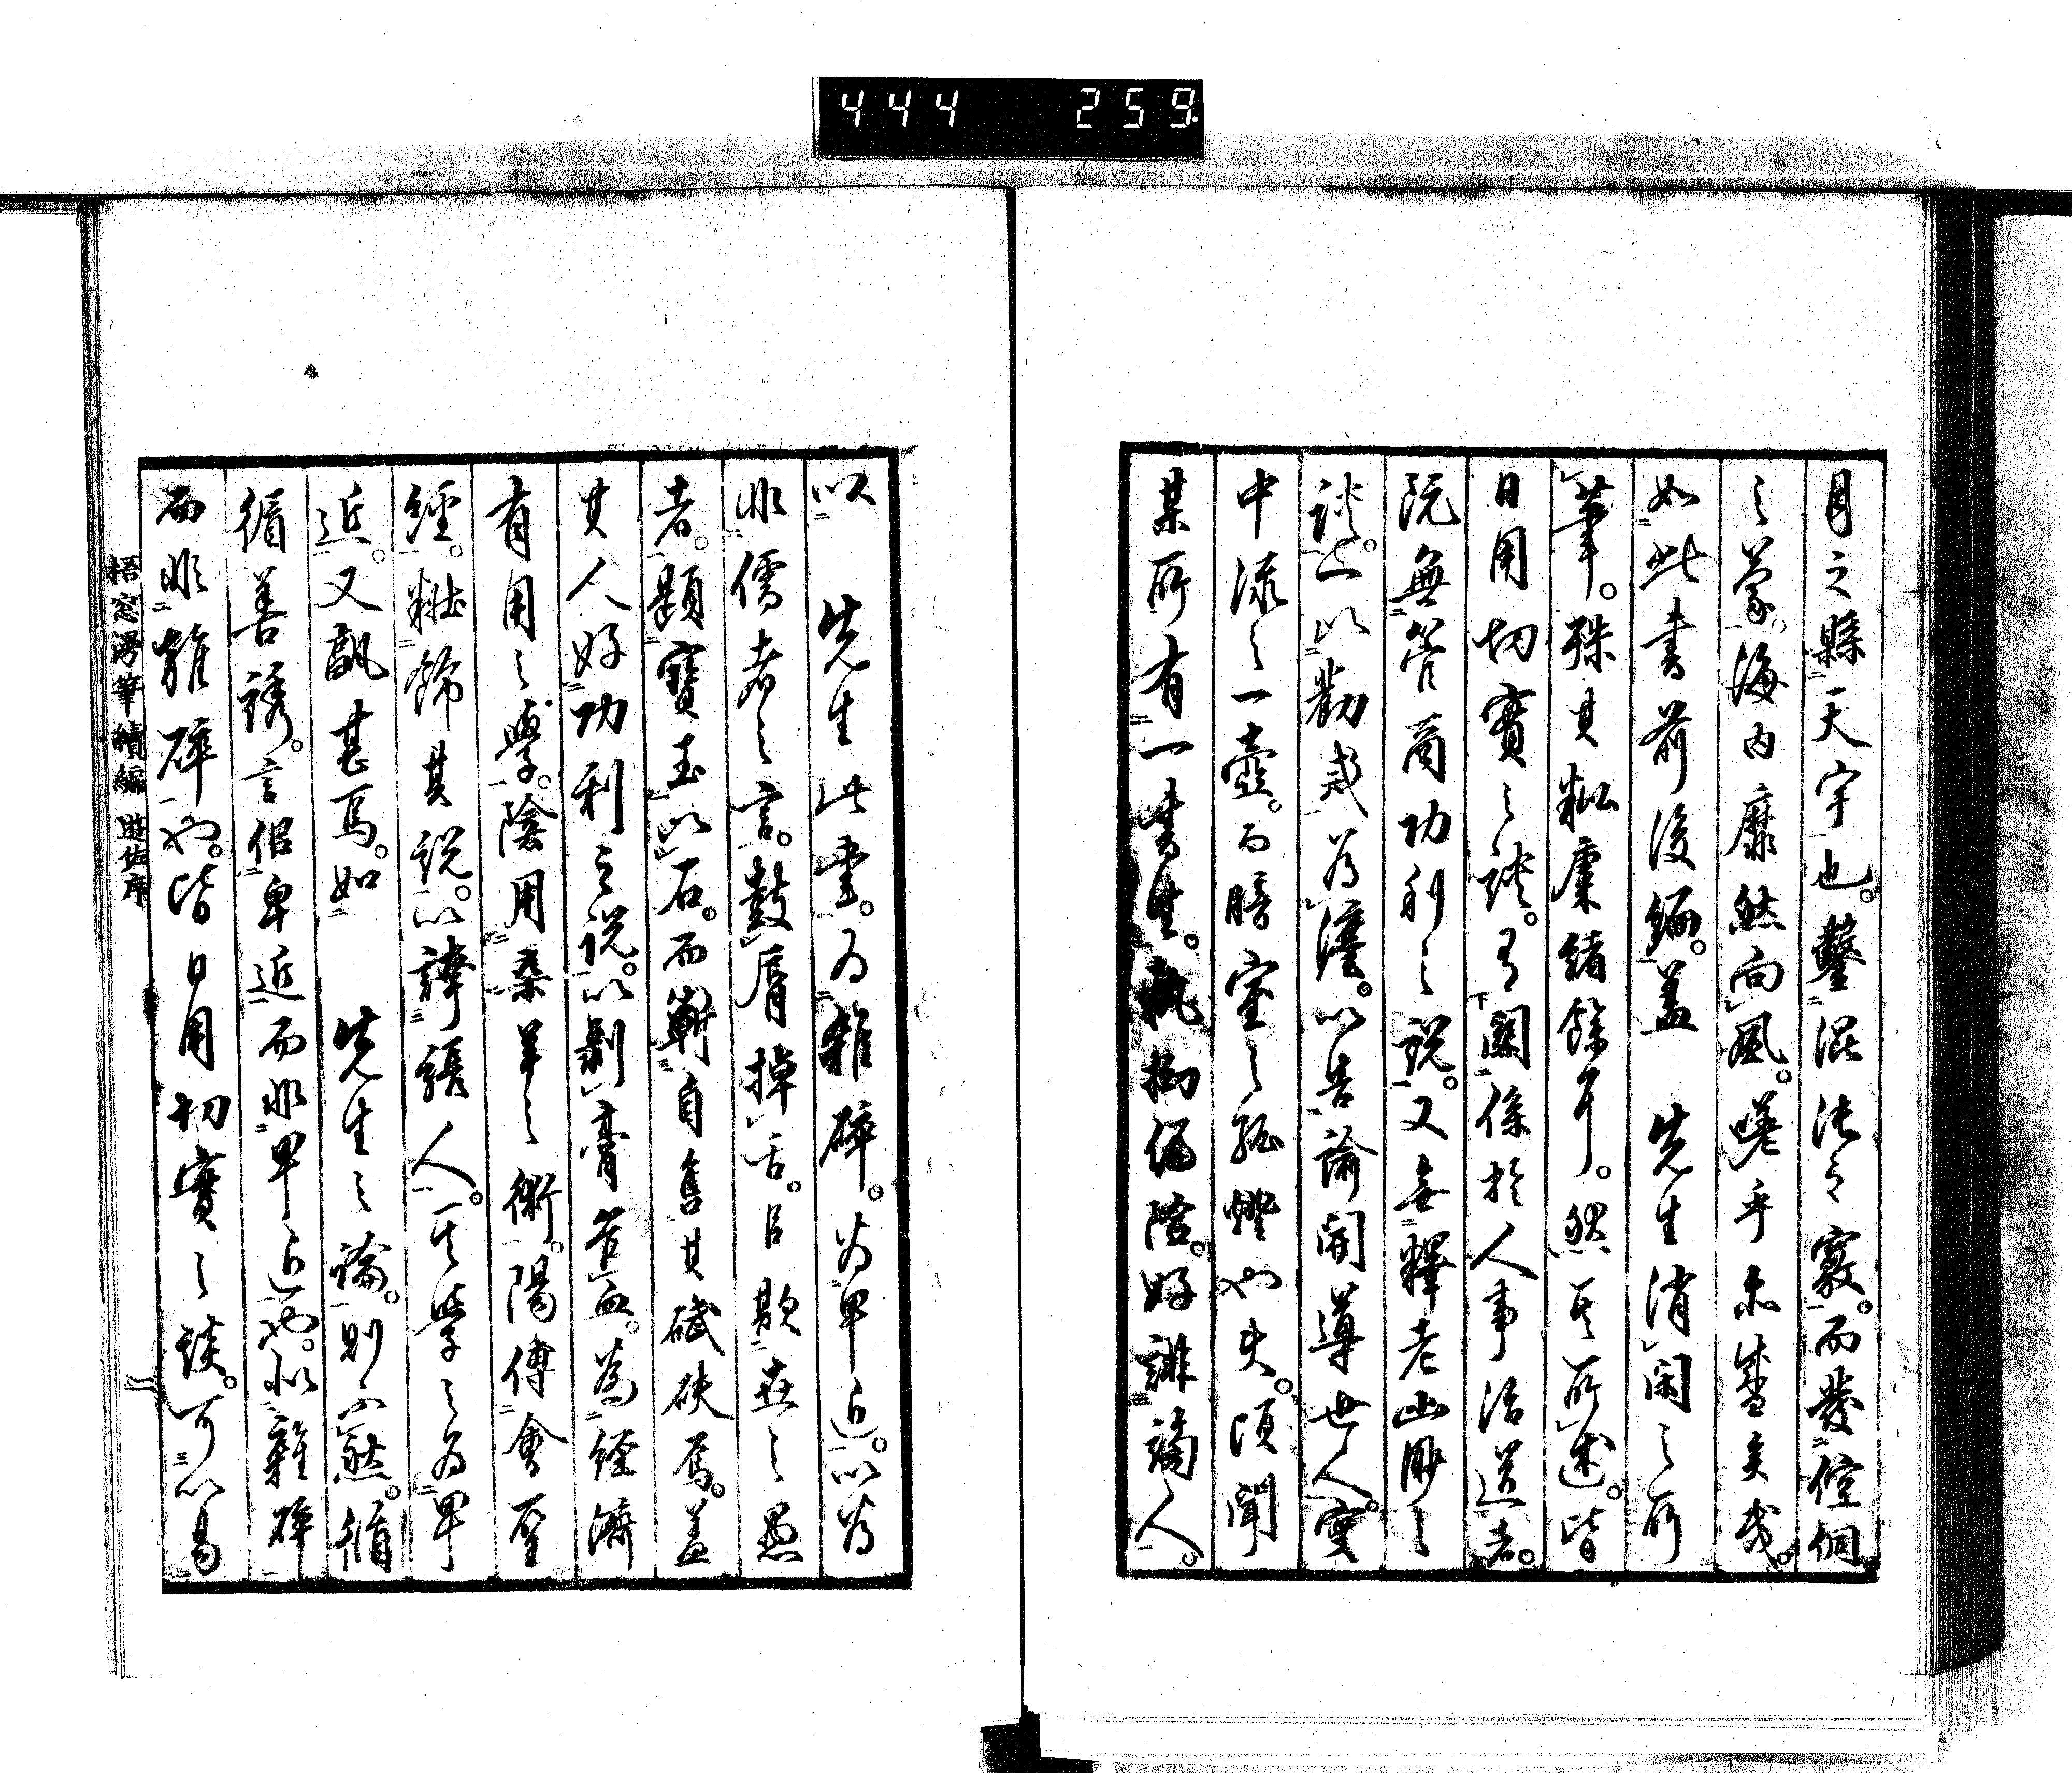 444 259
月之縣天宇也。鑿混沌之竅。而發倥侗
之蒙。海内靡然向風。嗟乎亦盛矣哉。
如此書前後編。蓋 先生消閑之所
筆。殊其粃糠緒餘耳。然其所述。皆
日用切實之談。有關係於人事治道者。
既無管商功利之說。又無釋老幽眇之
談。以勸戒為 。以告諭開導世人。實
中流之一壺。而暗室之孤燈也夫。頃聞
某所有一書生。執拗偏陋。好誹謗人。
以 先生此書。為雜碎。為卑近。以為
非儒者之言。鼓脣掉舌。 欺世之愚
者。題寶玉以石。而衒自售其碔砆焉。蓋
其人好功利之說。以剝膏 血。為經濟
有用之學。陰用桑羊之術。陽傅會聖
經。粧飾其說。以譸張人。其學之為卑
近。又孰甚焉。如 先生之論。則不然。循
循善誘。言似卑近而非卑近也。似雜碎
而非雜碎也。皆日用切實之談。可以易
梧窓漫筆續編 遊佐序 二